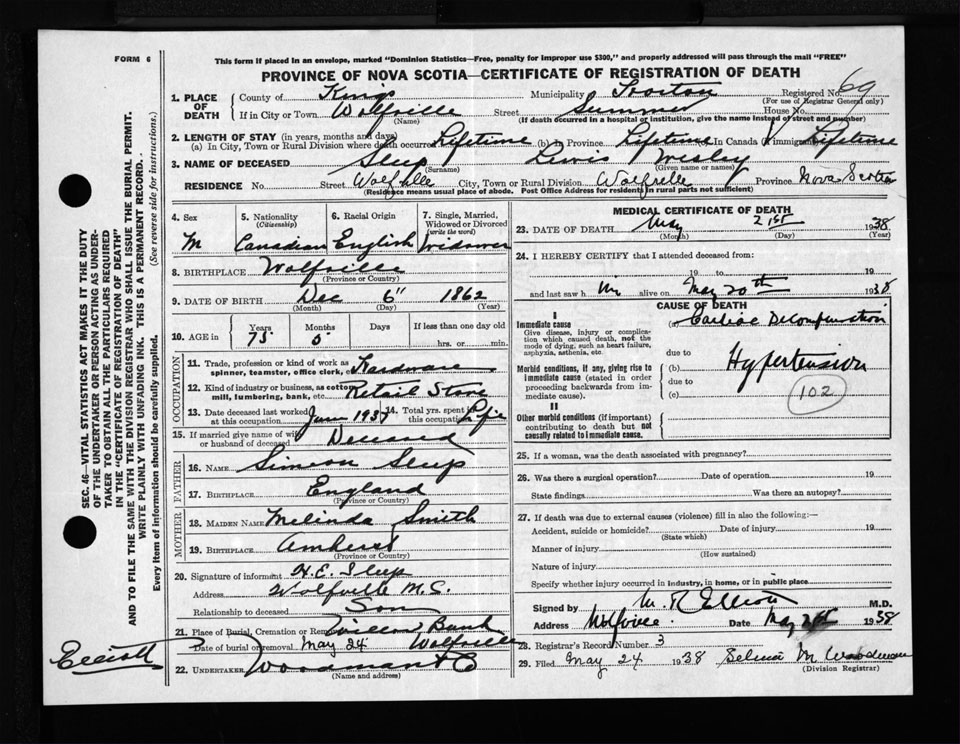 FORM 6
This form if placed in an envelope, marked "Dominion Statistics—Free, penalty for improper use $300," and properly addressed will pass through the mail "FREE"
PROVINCE OF NOVA SCOTIA—CERTIFICATE OF REGISTRATION OF DEATH
69
1. PLACE OF DEATH
County of Kings Municipality Horton Registered No.
(For use of Registrar General only)
If in City or Town Wolfville Street Summer House No.
(Name) (If death occurred in a hospital or institution, give the name instead of street and number)
2. LENGTH OF STAY (in years, months and days)
(a) In City, Town or Rural Division where death occurred Lifetime (b) in Province Lifetime In Canada if immigrant Lifetime
3. NAME OF DECEASED Sleep Lewis Wesley
(Surname) (Given name or names)
RESIDENCE No. Street Wolfville City, Town or Rural Division Wolfville Province Nova Scotia
(Residence means usual place of abode. Post Office Address for residents in rural parts not sufficient)
4. Sex
M
5. Nationality
(Citizenship)
Canadian
6. Racial Origin
English
7. Single, Married, Widowed or Divorced
(write the word)
Widower
8. BIRTHPLACE Wolfville
(Province or Country)
9. DATE OF BIRTH Dec 6" 1862
(Month) (Day) (Year)
10. AGE in Years Months Days If less than one day old
75 5 hrs. or min.
OCCUPATION
11. Trade, profession or kind of work as spinner, teamster, office clerk, etc. Hardware
12. Kind of industry or business, as cotton mill, lumbering, bank, etc. Retail Store
13. Date deceased last worked at this occupation June 1937 14. Total yrs. spent in this occupation Life
15. If married give name of wife or husband of deceased Deceased
FATHER
16. NAME Simeon Sleep
17. BIRTHPLACE England
(Province or Country)
MOTHER
18. MAIDEN NAME Melinda Smith
19. BIRTHPLACE Amherst
(Province or Country)
20. Signature of informant H.E. Sleep
Address Wolfville N.S.
Relationship to deceased Son
21. Place of Burial, Cremation or Removal Willow Bank
Date of burial or removal May 24 Wolfville
22. UNDERTAKER Woodman
(Name and address)
Elliott
MEDICAL CERTIFICATE OF DEATH
23. DATE OF DEATH May 21st 1938
(Month) (Day) (Year)
24. I HEREBY CERTIFY that I attended deceased from:
19 to 19
and last saw him alive on May 20th 1938
CAUSE OF DEATH
I
Immediate cause
Give disease, injury or complication which caused death, not the mode of dying, such as heart failure, asphyxia, asthenia, etc.
(a) Cardiac Decompensation
due to
Morbid conditions, if any, giving rise to immediate cause (stated in order proceeding backwards from immediate cause).
(b) Hypertension
due to
(c)
102
II
Other morbid conditions (if important) contributing to death but not causally related to immediate cause.
25. If a woman, was the death associated with pregnancy?
26. Was there a surgical operation? Date of operation 19
State findings Was there an autopsy?
27. If death was due to external causes (violence) fill in also the following:—
Accident, suicide or homicide? Date of injury 19
(State which)
Manner of injury
(How sustained)
Nature of injury
Specify whether injury occurred in industry, in home, or in public place
Signed by M. R. Elliott M.D.
Address Wolfville Date May 21st 1938
28. Registrar's Record Number 3
29. Filed May 24 1938 Selina M Woodman
(Division Registrar)
SEC. 46—VITAL STATISTICS ACT MAKES IT THE DUTY
OF THE UNDERTAKER OR PERSON ACTING AS UNDERTAKER
TO OBTAIN ALL THE PARTICULARS REQUIRED
IN THE "CERTIFICATE OF REGISTRATION OF DEATH"
AND TO FILE THE SAME WITH THE DIVISION REGISTRAR WHO SHALL ISSUE THE BURIAL PERMIT.
WRITE PLAINLY WITH UNFADING INK. THIS IS A PERMANENT RECORD.
Every item of information should be carefully supplied. (See reverse side for instructions.)